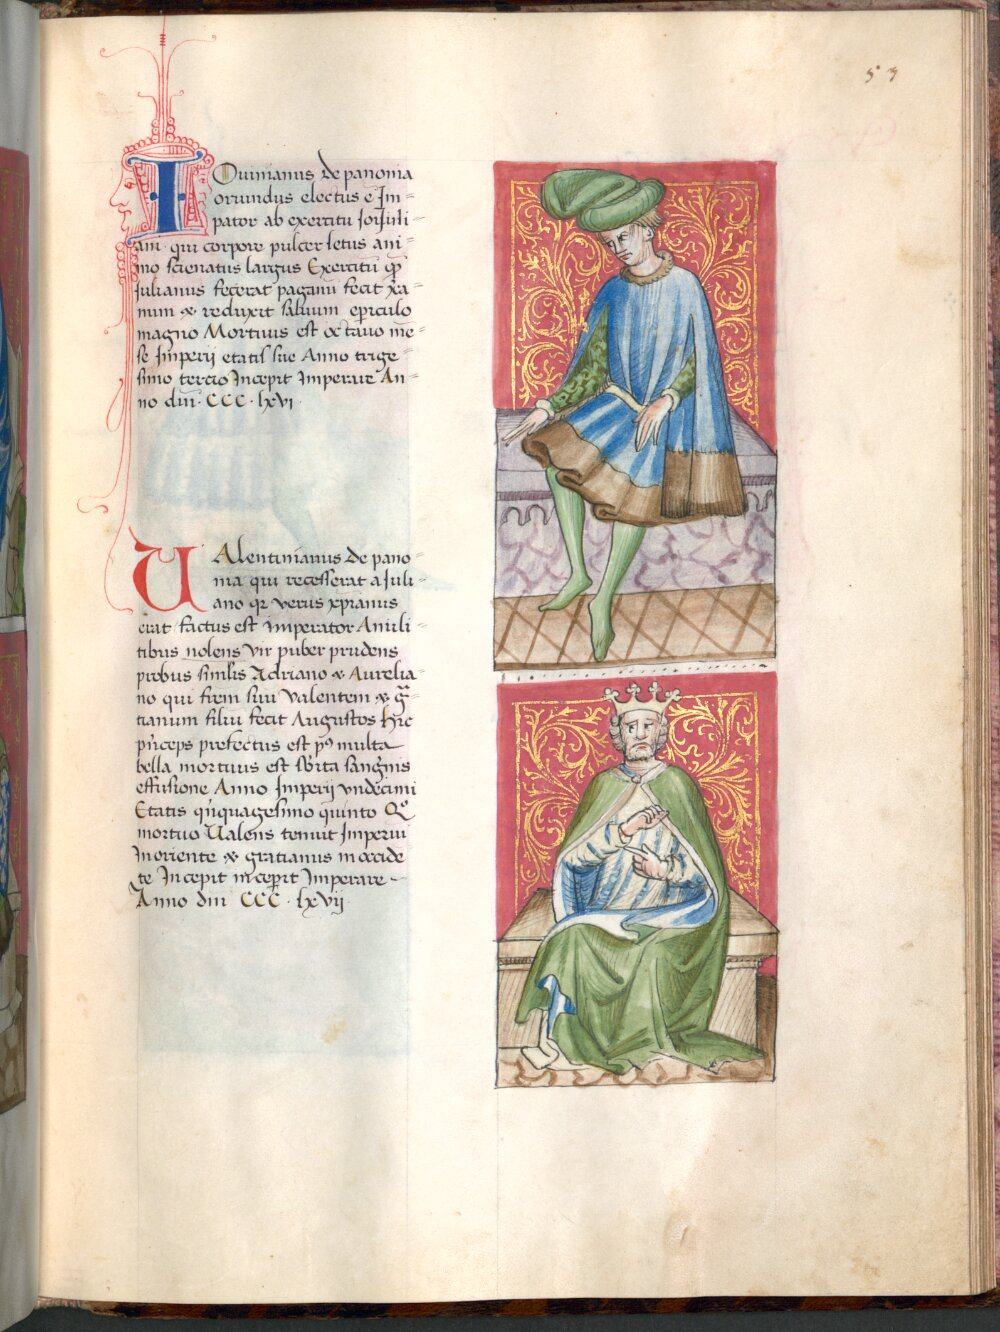 53
IOuinianus de panonia
oriundus electus ē Im=
pator ab exercitu
am· qui corpore pulcer letus ani=
mo scienatus largus Exercitū q̄
Iulianus fecerat paganū fecit xr̄a
num & reduxit saluum epiculo
magno Mortuus est octauo mē=
se Imperij etatis sue Anno trige=
simo tercio Incepit Imperare An=
no dni· CCC· lxvi·
UAlentinianus de pano=
nia qui recesserat a Iuli=
ano qr verus xpianus
erat factus est imperator Amili=
tibus nolens Vir puber prudens
probus similis Adriano & Aurelia=
no qui frem suū Valentem & Gr̄a=
tianum filiū fecit Augustos Hic
pnceps prefectus est p9 multa
bella mortuus est sbita sangnis
effusione Anno Imperij vndecimi
Etatis qnquagesimo quinto Q̄
mortuo Ualens tenuit Imperiū
Inoriente & gratianus inoccide
te Incepit incepit Imperare
Anno dni CCC· lxvij